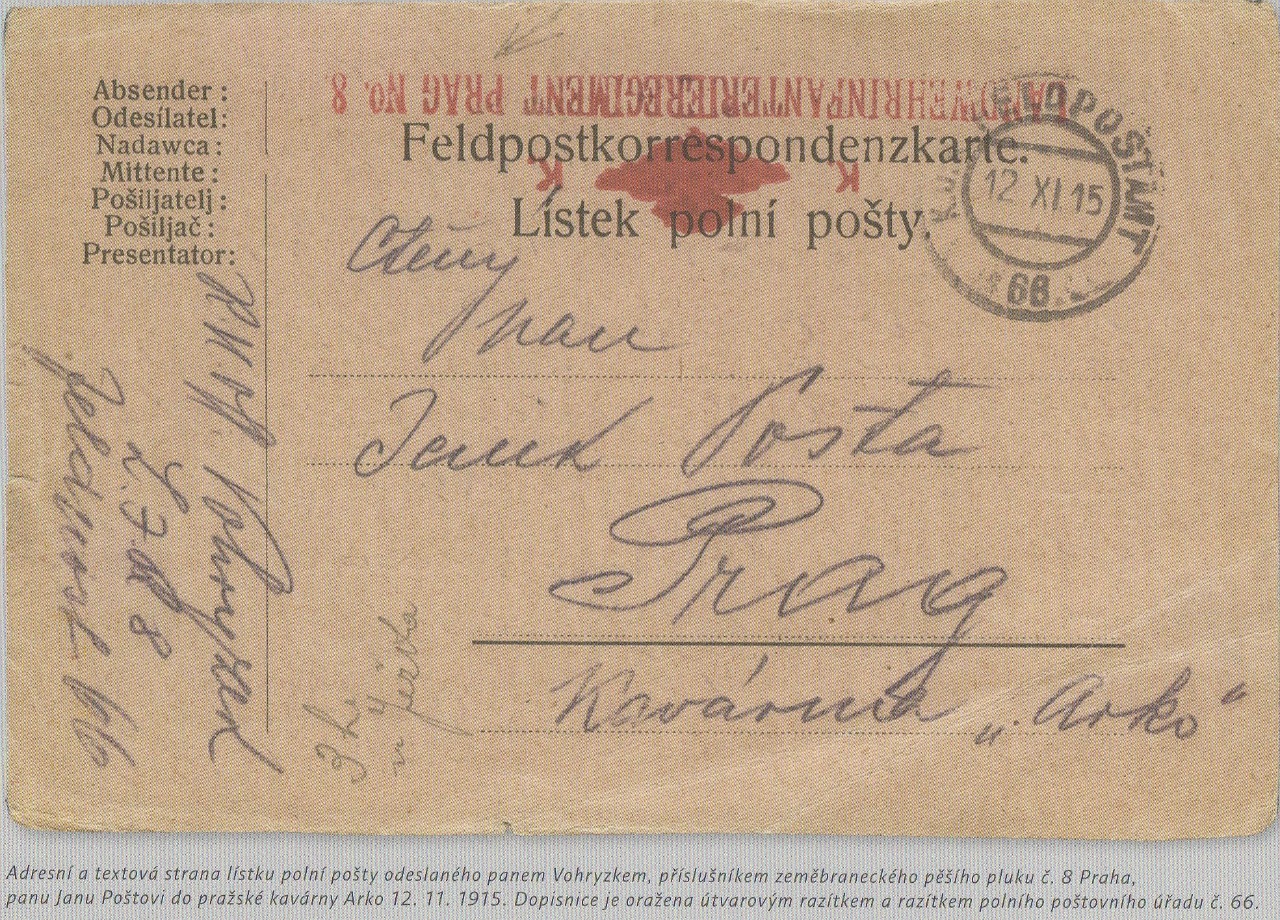 Absender:
Odesílatel:
Nadawca:
Mittente:
Pošiljatelj:
Pošiljač:
Presentator:
LANDWEHRINFANTERIEREGIMENT PRAG No. 8
K K
Feldpostkorrespondenzkarte.
Lístek polní pošty.
K.u.K. FELDPOSTAMT
12 XI 15
66
Ctěný
pan
Jeník Pošta
Prag
Kavárna „Arko“
Vohryzek
L.I.R. 8
Feldpost 66
Adresní a textová strana lístku polní pošty odeslaného panem Vohryzkem, příslušníkem zeměbraneckého pěšího pluku č. 8 Praha,
panu Janu Poštovi do pražské kavárny Arko 12. 11. 1915. Dopisnice je oražena útvarovým razítkem a razítkem polního poštovního úřadu č. 66.